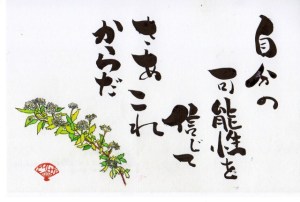 自分の
可能性を
信じて
さあこれ
からだ